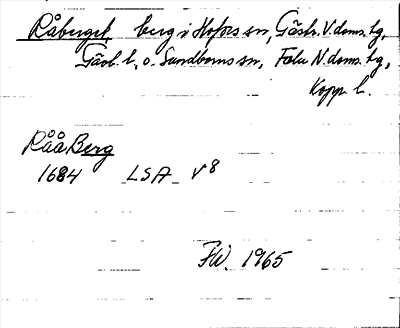 Råberget, berg i Hofors sn, Gästr. V. doms. tg,
Gävl. l., o. Sundborns sn, Falu N. doms. tg,
Kopp. l.
RååBerg
1684 LSA V8
FW. 1965